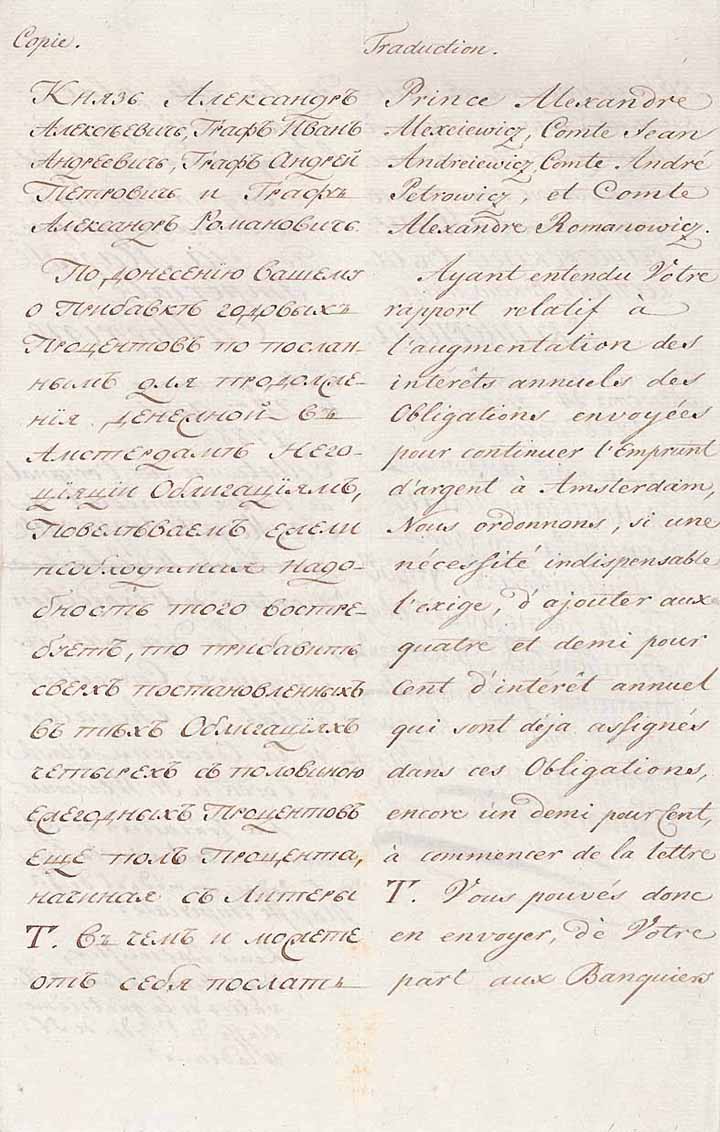 Copie.
Князь Александръ
Алексѣевичь, Графъ Иванъ
Андреевичь, Графъ Андрей
Петровичь и Графъ
Александръ Романовичь.
По донесенїю Вашему
о прибавкѣ годовыхъ
процентовъ по послан-
нымъ для продолже-
нїя денежной въ
Амстердамѣ Него-
цїяцїи Облигацїямъ,
Повелѣваемъ ежели
необходимая надо-
бность того востре-
буетъ, то прибавить
сверхъ постановленныхъ
въ тѣхъ Облигацїяхъ
четырехъ съ половиною
ежегодныхъ Процентовъ
еще полъ Процента,
начиная съ Литеры
Т. Въ чемъ и можете
отъ себя послать
Traduction.
Prince Alexandre
Alexeiewicz, Comte Jean
Andreiewicz, Comte André
Petrowicz, et Comte
Alexandre Romanowicz.
Ayant entendu Votre
rapport relatif à
l'augmentation des
intérêts annuels des
Obligations envoyées
pour continuer l'Emprunt
d'argent à Amsterdam,
Nous ordonnons, si une
nécessité indispensable
l'exige, d'ajouter aux
quatre et demi pour
Cent d'intérêt annuel
qui sont déja assignés
dans ces Obligations,
encore un demi pour Cent,
à commencer de la lettre
T. Vous pouvés donc
en envoyer, de Votre
part aux Banquiers